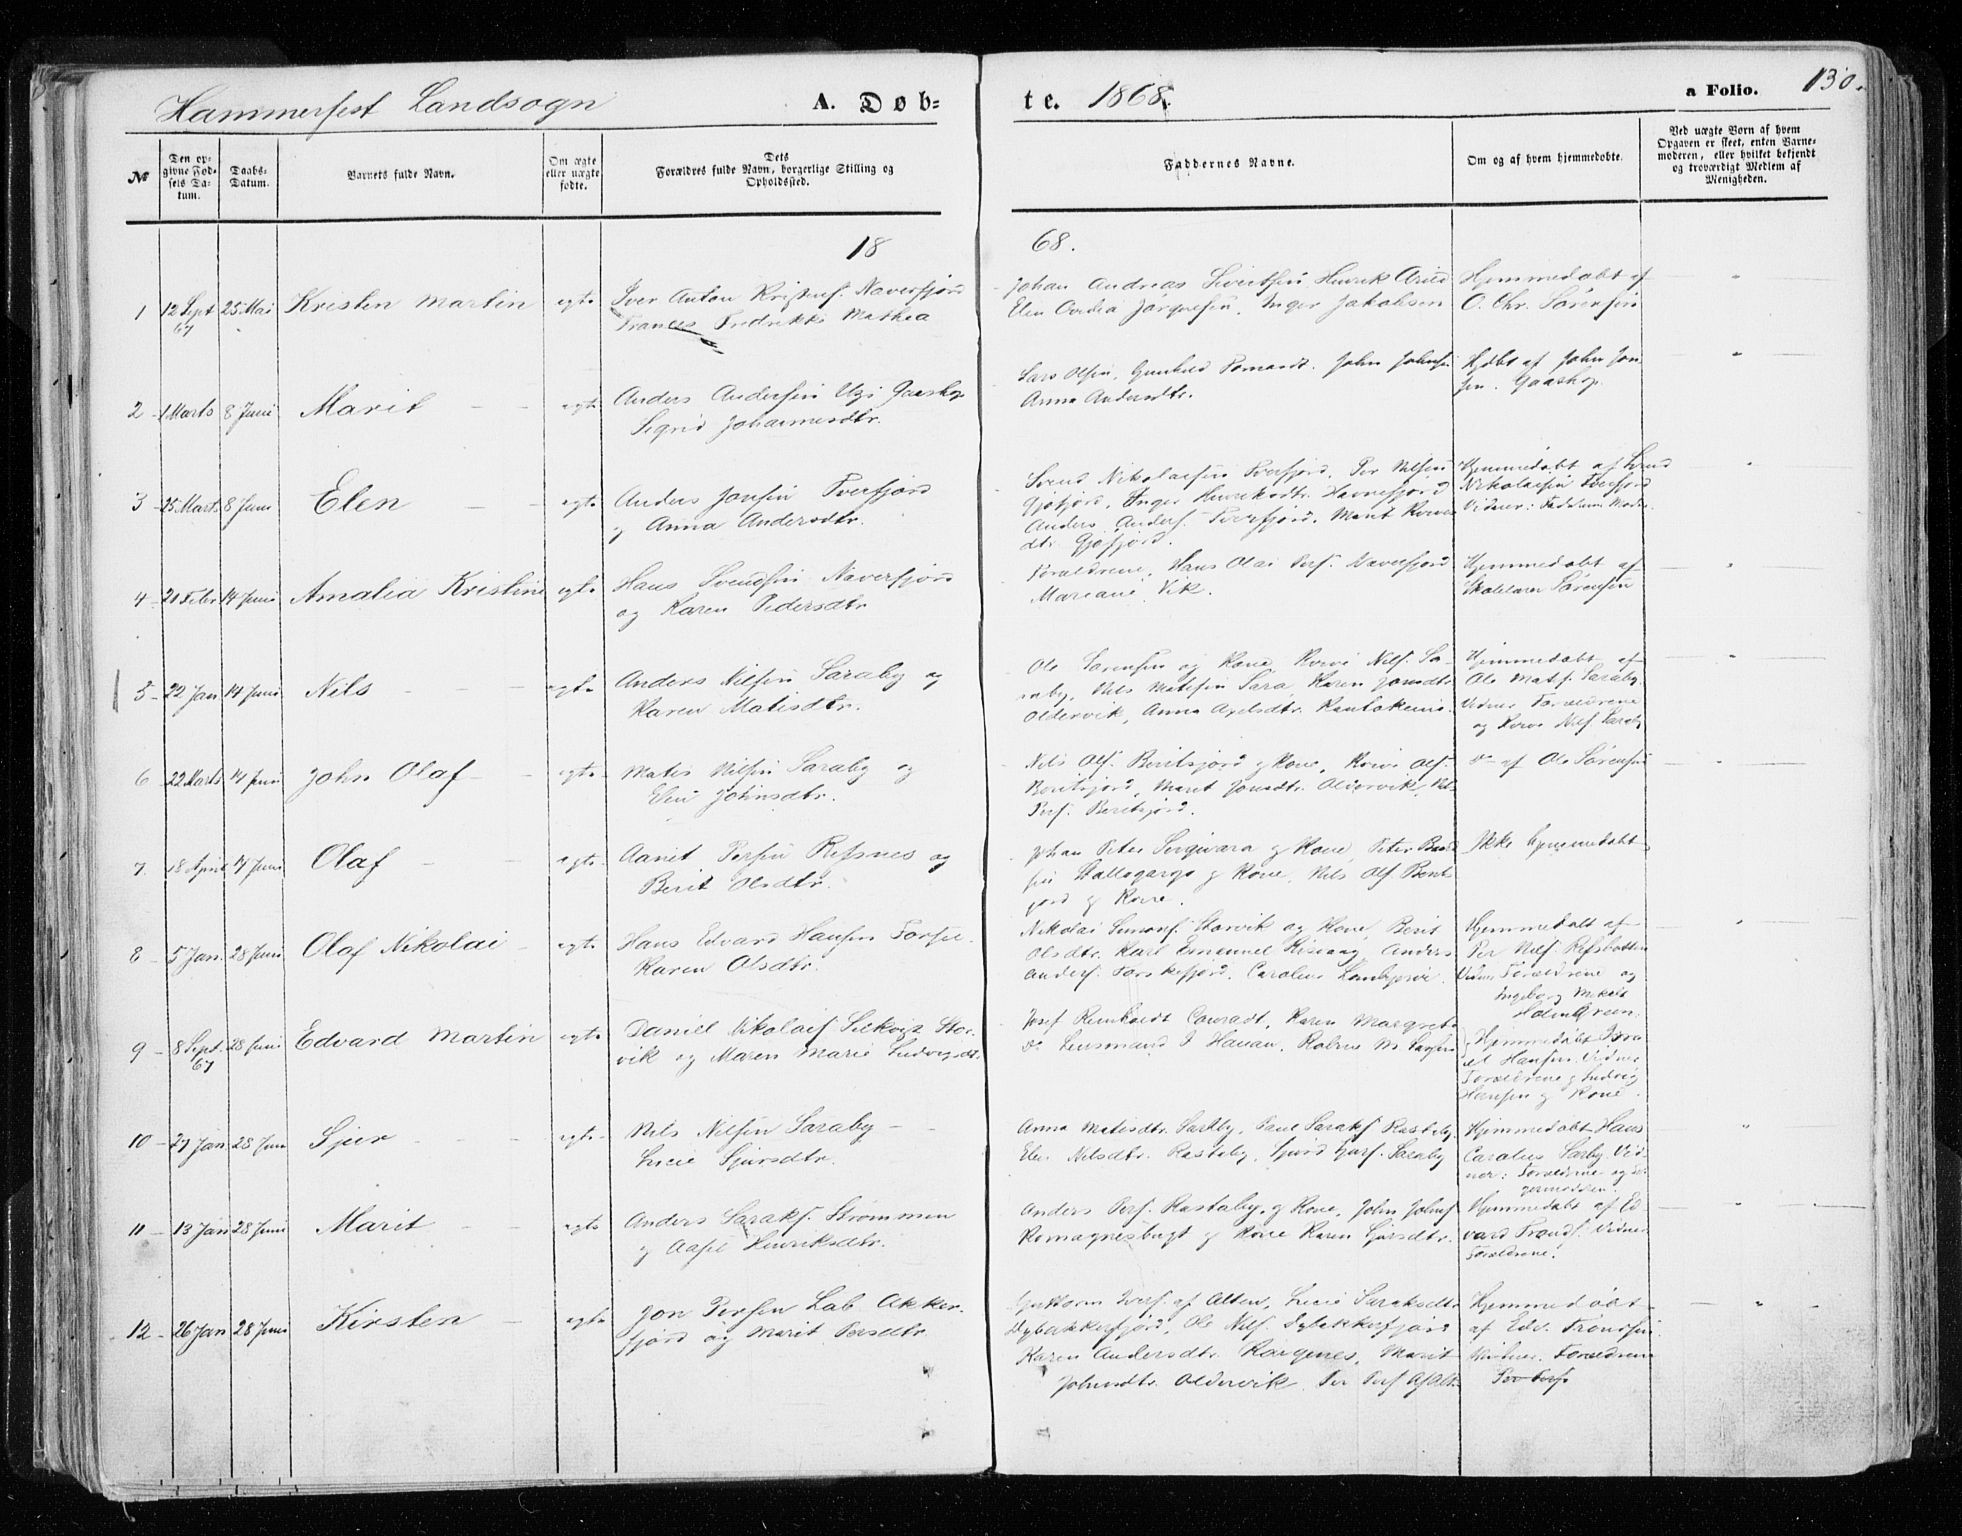 Hammerfest Landsogn A. Døb= te. 1868. a Folio. 130.
№
Den opgivne Fødsels Datum.
Daabs-Datum.
Barnets fulde Navn.
Om ægte eller uægte fødte.
Dets Forældres fulde Navn, borgerlige Stilling og Opholdssted.
Faddernes Navne.
Om og af hvem hjemmedøbte.
Ved uægte Børn af hvem Opgaven er skeet, enten Barnemoderen, eller hvilket bekjendt og troværdigt Medlem af Menigheden.
18 68.
1 12 Sept 67 25 Mai Kristen Martin egte
Iver Anton Kristens. Naverfjord
Frances Fredrikke Mathea
Johan Andreas Sivertsen Henrik
Elen Ovedia Jørgensen, Inger Jakobsen
Hjemmedøbt af
O. Chr. Sørensen
2 1 Marts 8 Juni Marit egte
Anders Andersen Gaashop
Sigrid Johannesdtr.
Lars Olsen, Gunhild John Johnsen
Anna Andersdtr.
Hjdbt af John Jon
sen. Gaashop.
3 25 Marts 8 Juni Elen egte
Anders Jonsen Tverfjord
og Anna Andersdtr.
Svend Nikolaisen Tverfjord, Per Nilsen
Gjøfjord, Inger Henriksdtr. Havnefjord
Anders Anders. Tverfjord, Marit
dtr. Gjøfjord.
Hjemmedøbt af Svend
Nikolaisen Tverfjord
Vidner: Fadderne
4 21 Febr 14 Juni Amalia Kristine egte
Hans Svendsen Naverfjord
og Karen Pedersdtr.
Forældrene, Hans Olai Pers. Naverfjord
Mariane Vik.
Hjemmedøbt af
Skolelærer Sørensen
5 22 Jan 14 Juni Nils egte
Anders Nilsen Saraby og
Karen Matisdtr.
Ole Sørensen og Kone, Nils. Sa-
raby, Nils Matisen Sara, Karen Jonsdtr.
Oldervik, Anna Axelsdtr. Kautokeino.
Hjemmedøbt af
Ole Mats. Saraby.
Vidner Forældrene
og Nils. Saraby
6 22 Marts 14 Juni John Olaf egte
Matis Nilsen Saraby og
Elen Johnsdtr.
Nils Ols. Beritsjord og Kone, Ols.
Beritsjord, Marit Jonsdtr. Oldervik, Nils
Pers. Beritsjord.
do af Ole Sørensen
7 18 April 14 Juni Olaf egte
Persen Refsnes og
Berit Olsdtr.
Johan Peter og Kone, Peter
sen og Kone, Nils Ols. Berit
jord og Kone.
Ikke hjemmedøbt
8 5 Jan. 28 Juni Olaf Nikolai egte
Hans Edvard Hansen
Karen Olsdtr.
Nikolai Simons. Storvik og Kone, Berit
Olsdtr. Karl Emanuel Anders
Anders. Torskefjord,
Hjemmedøbt af
Per Nils. Refsbotten
Vidner Forældrene og
Ingeborg Mikels
HolmGreen.
9 8 Sept. 67 28 Juni Edvard Martin egte
Daniel Nikolais. Stor-
vik og Maren Marie Ludvigsdt.
Josef Reinholdt Conradt, Karen Margrete
do Lensmand
Hjemmedøbt
Hansen. Vidner
Forældrene og Ludvig
Hansen og Kone.
10 27 Jan 28 Juni Sjur egte
Nils Nilsen Saraby
Lucie Sjursdtr.
Anna Matisdtr. Sarbby, Paul Saraks. Rastaby.
Elen Nilsdtr. Rastaby, Saraby
Hjemmedøbt Hans
Carolus Sarby. Vid
ner: Forældrene og
11 13 Jan 28 Juni Marit egte
Anders Saraks. Strømmen
og Henriksdtr.
Anders Pers. Rastaby og Kone, John Johns.
Komagnesbugt og Kone Karen Sjursdtr.
Hjemmedøbt af Ed
vard Vidner
Forældrene.
12 26 Jan 28 Juni Kirsten egte
Jon Persen Lab. Akker-
fjord og Marit Persdtr.
Guttorm Ivers. af Alten, Lucie Saraksdtr.
Dybakkerfjord, Ole Nils. Dybakkerfjord
Karen Andersdtr. Marit
Johnsdtr. Oldervik. Per Pers
Hjemmedøbt
af Edv. Trondsen
Vidner. Forældrene